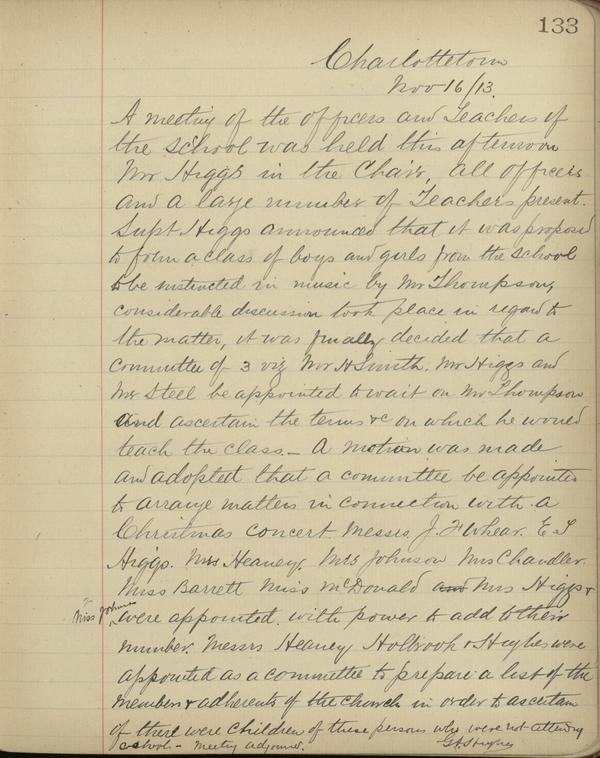 133
Charlottetown
Nov 16/13.
A meeting of the officers and Teachers of
the school was held this afternoon
Mr Higgs in the Chair, all officers
and a large number of Teachers present.
Supt Higgs announced that it was proposed
to form a class of boys and girls from the school
to be instructed in music by Mr Thompson,
considerable discussion took place in regard to
the matter, it was finally decided that a
committee of 3 viz Mr H Smith. Mr Higgs and
Mr Steel be appointed to wait on Mr Thompson
and ascertain the terms &c on which he would
teach the class. — A motion was made
and adopted that a committee be appointed
to arrange matters in connection with a
Christmas concert. Messrs J. F Whear. E S
Higgs. Mrs. Heaney. Mrs Johnson Mrs Chandler.
Miss Barrett Miss McDonald and Mrs Higgs &
Miss
were appointed. with power to add to their
number. Messrs Heaney Holbrook & Hughes were
appointed as a committee to prepare a list of the
members & adherents of the church in order to ascertain
if there were children of these persons who were not attending
school — Meeting adjourned.